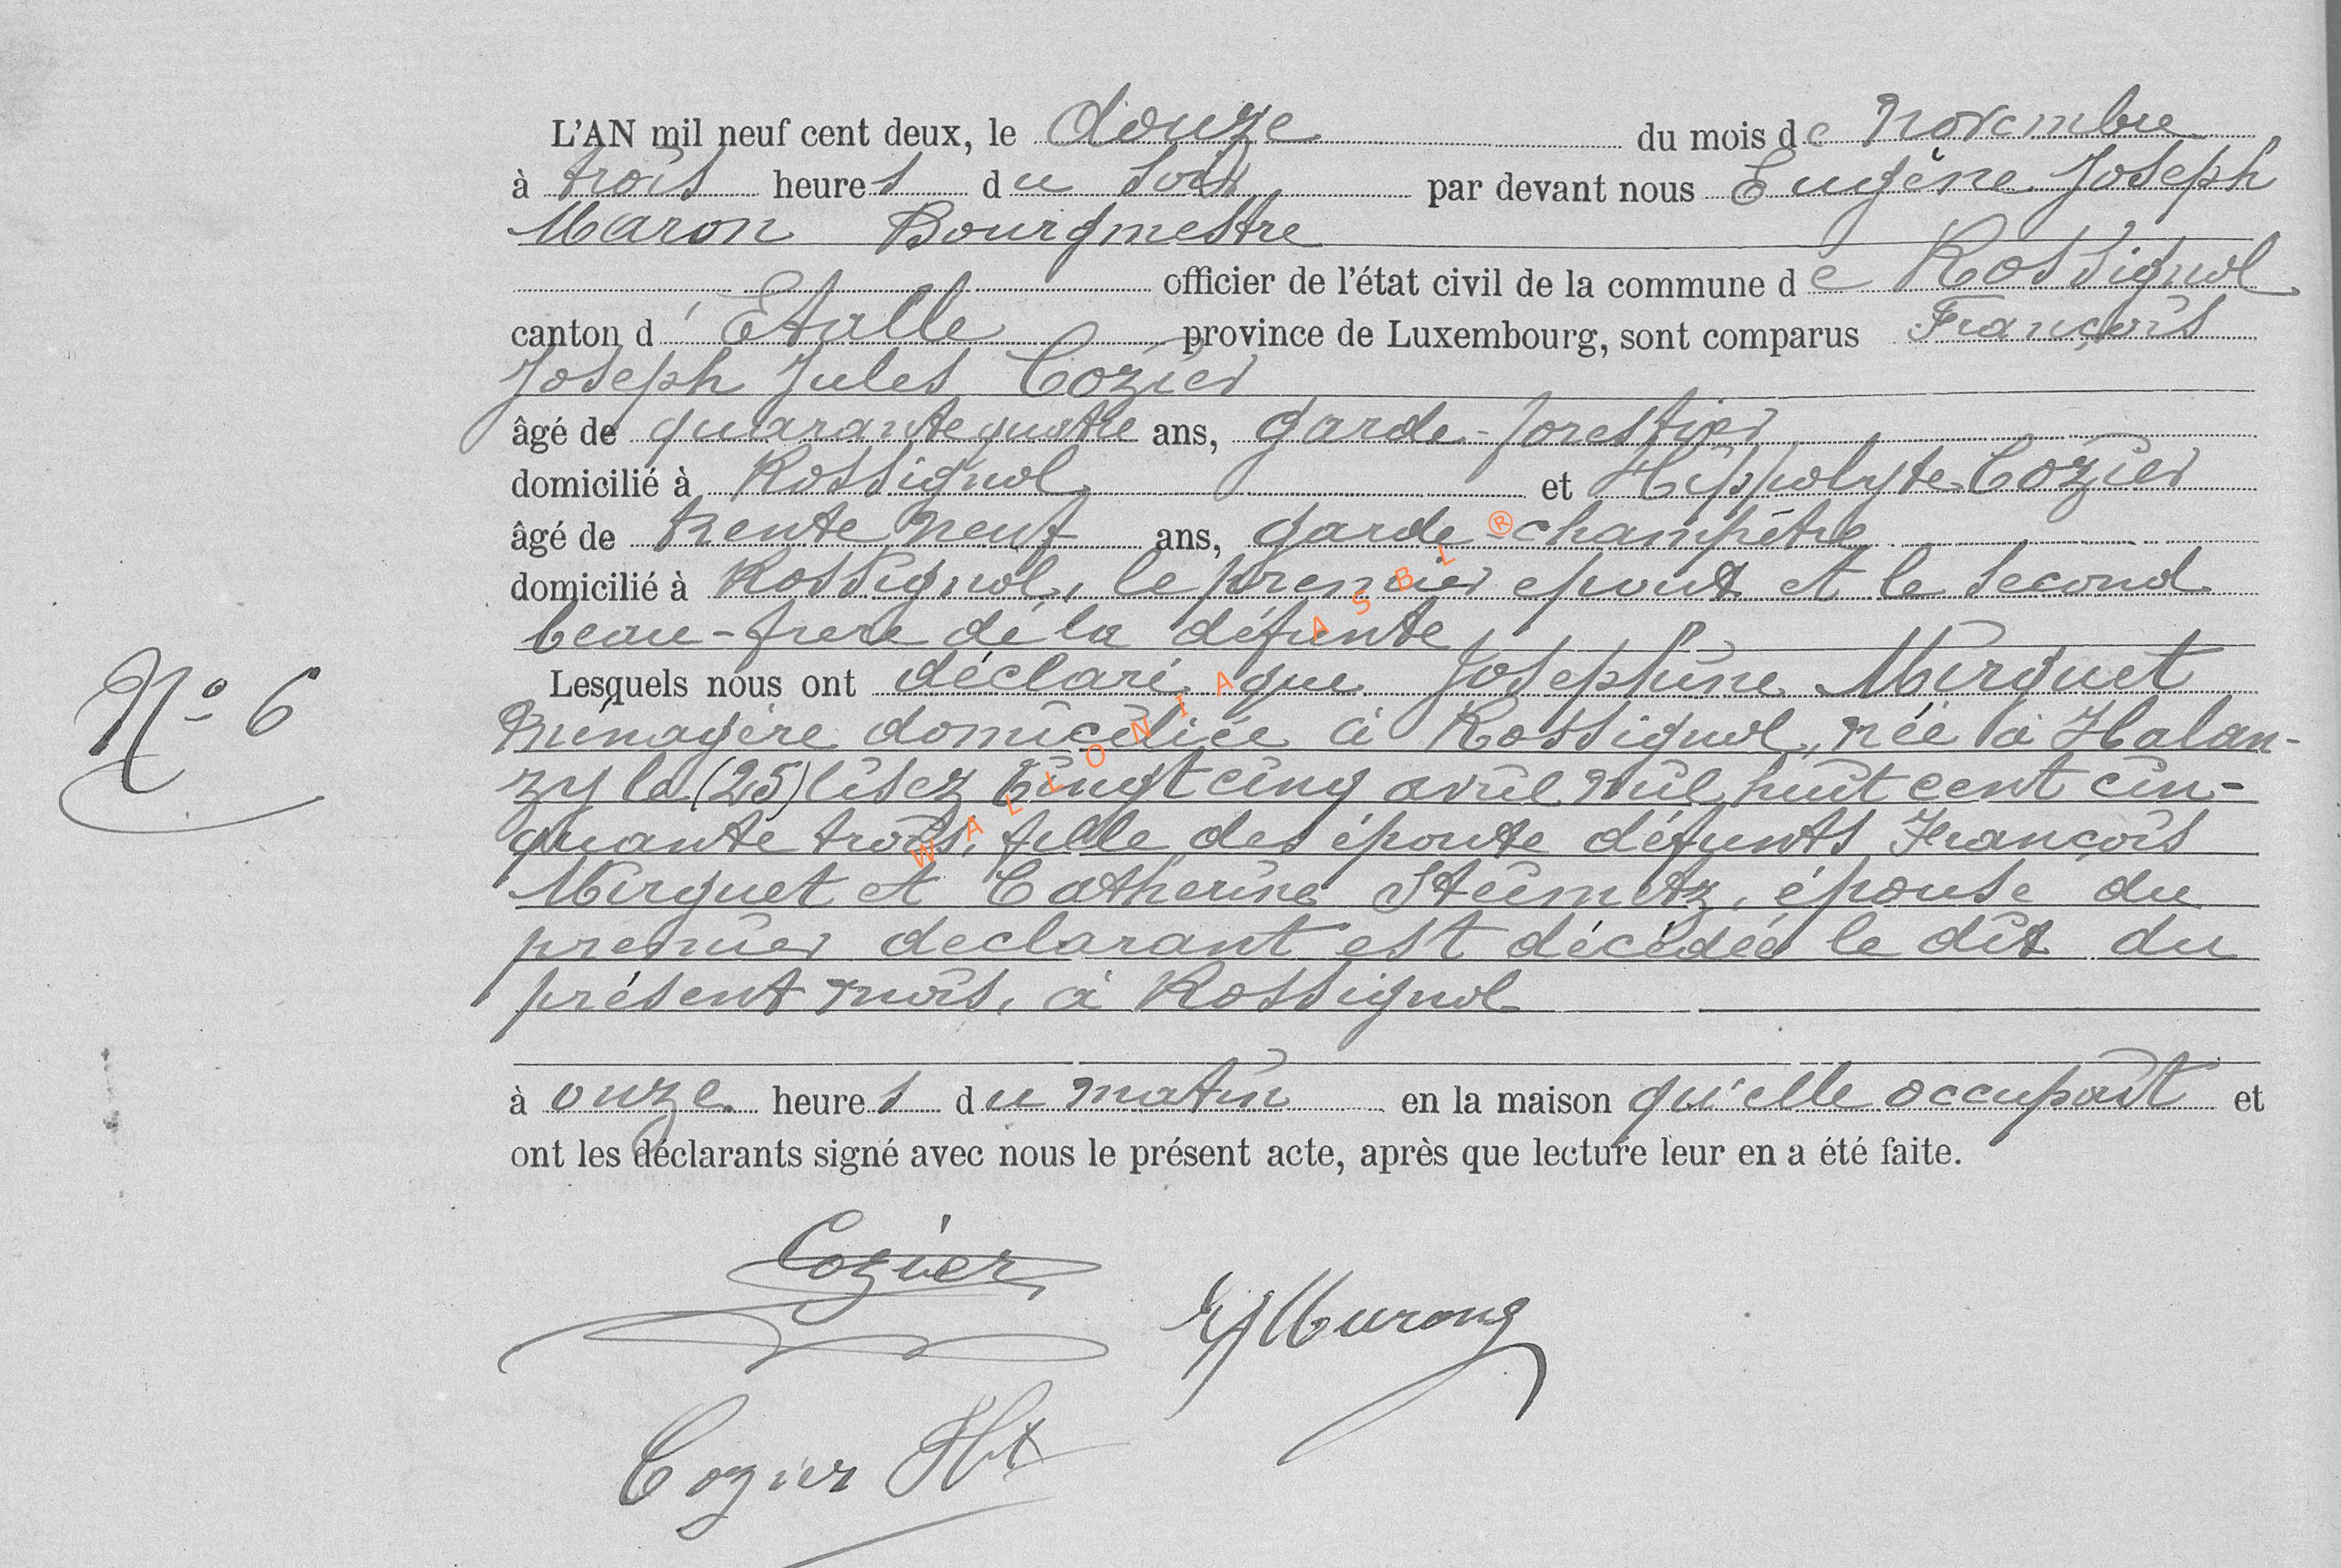 L'AN mil neuf cent deux, le douze du mois de Novembre
à trois heures du soir par devant nous Eugène Joseph
Maron Bourgmestre
officier de l'état civil de la commune de Rossignol
canton d'Etalle province de Luxembourg, sont comparus François
Joseph Jules Cozier
âgé de quarante quatre ans, garde-forestier
domicilié à Rossignol et Hippolyte Cozier
âgé de trente neuf ans, garde-champêtre
domicilié à Rossignol, le premier epoux et le second
beau-frere de la défunte
Lesquels nous ont déclaré que Joséphine Mirguet
N° 6
ménagère domiciliée à Rossignol, née à Halan-
zy le (25) lisez vingt cinq avril mil huit cent cin-
quante trois, fille des époux défunts François
Mirguet et Catherine Steimetz, épouse du
premier declarant est décédée le dix du
présent mois, à Rossignol
à onze heures du matin en la maison qu'elle occupait et
ont les déclarants signé avec nous le présent acte, après que lecture leur en a été faite.
Cozier
Cozier Hte
WALLONIA ASBL ®